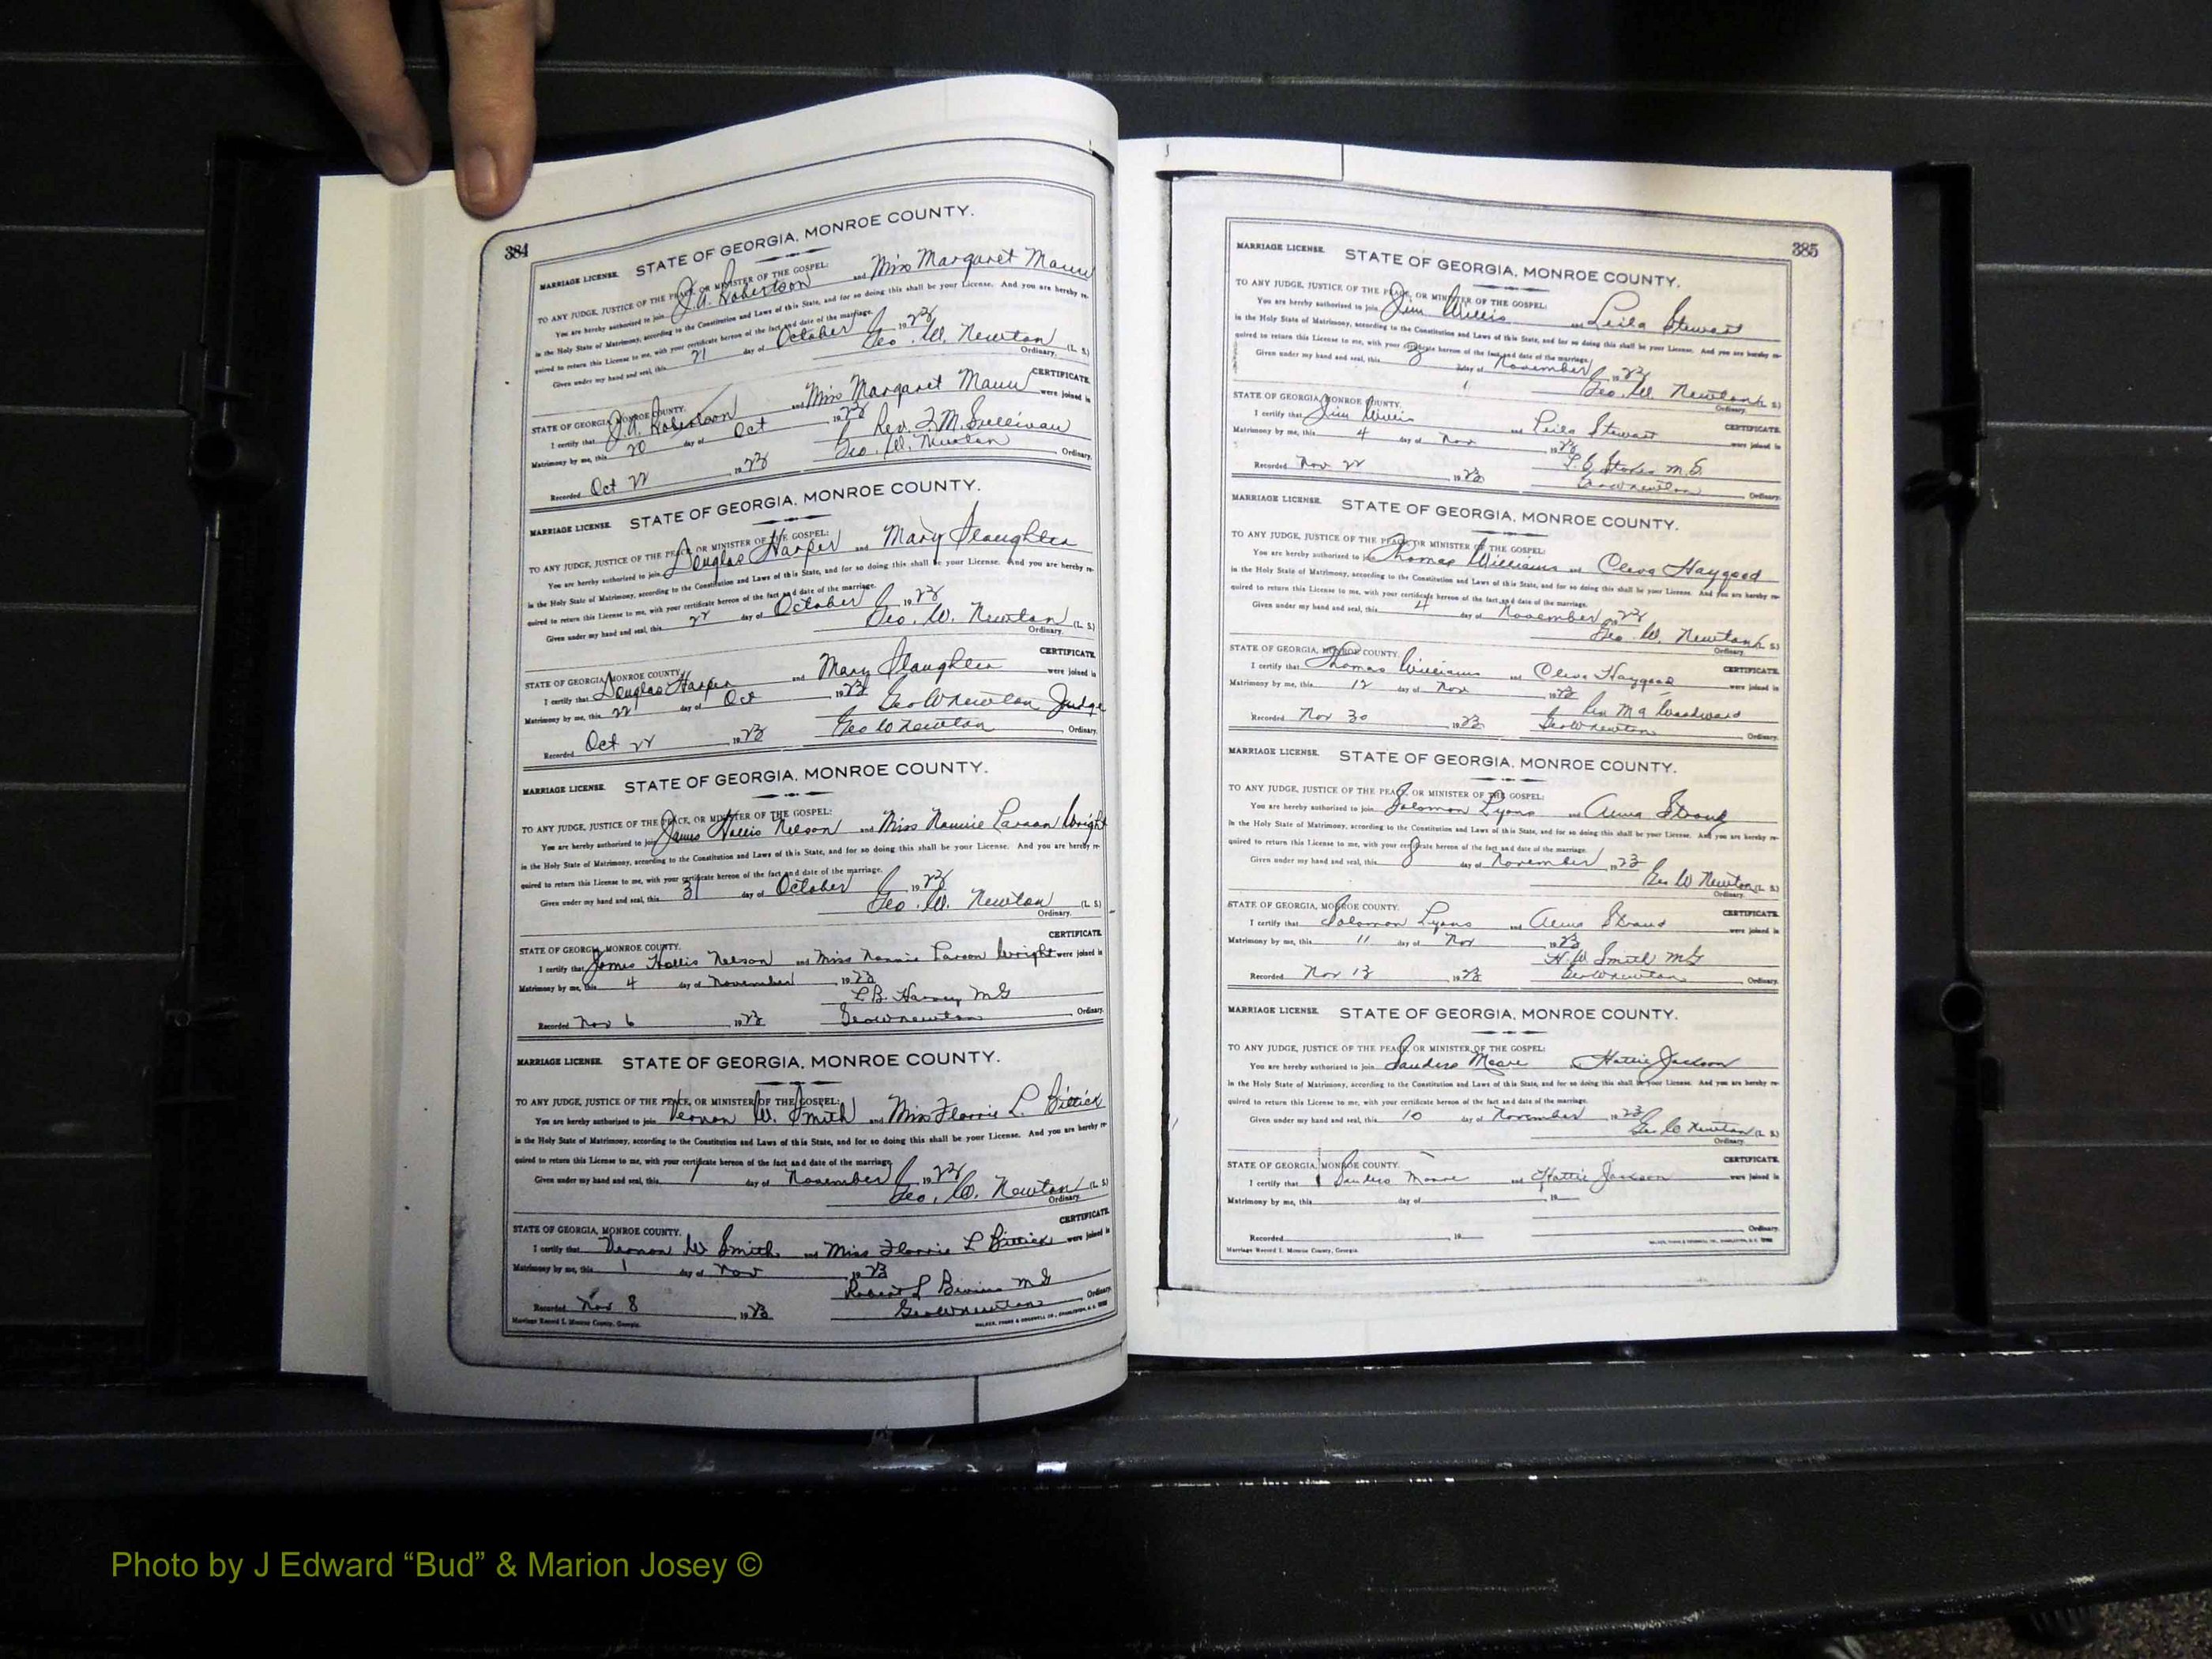 384
STATE OF GEORGIA, MONROE COUNTY.
MARRIAGE LICENSE.
TO ANY JUDGE, JUSTICE OF THE PEACE, OR MINISTER OF THE GOSPEL:
You are hereby authorized to join J. A. Robertson and Miss Margaret Mann
in the Holy State of Matrimony, according to the Constitution and Laws of this State, and for so doing this shall be your License. And you are hereby re-
quired to return this License to me, with your certificate hereon of the fact and date of the marriage.
Given under my hand and seal, this 21 day of October 1923
Geo. W. Newton (L. S.)
Ordinary.
STATE OF GEORGIA, MONROE COUNTY. CERTIFICATE.
I certify that J. A. Robertson and Miss Margaret Mann were joined in
Matrimony by me, this 20 day of Oct 1923
Rev. J. M. Sullivan
Recorded Oct 22 1923 Geo. W. Newton Ordinary.
MARRIAGE LICENSE. STATE OF GEORGIA, MONROE COUNTY.
TO ANY JUDGE, JUSTICE OF THE PEACE, OR MINISTER OF THE GOSPEL:
You are hereby authorized to join Douglas Harper and Mary Slaughter
in the Holy State of Matrimony, according to the Constitution and Laws of this State, and for so doing this shall be your License. And you are hereby re-
quired to return this License to me, with your certificate hereon of the fact and date of the marriage.
Given under my hand and seal, this 22 day of October 1923
Geo. W. Newton (L. S.)
Ordinary.
STATE OF GEORGIA, MONROE COUNTY. CERTIFICATE.
I certify that Douglas Harper and Mary Slaughter were joined in
Matrimony by me, this 22 day of Oct 1923
Geo W Newton Judge
Recorded Oct 22 1923 Geo W Newton Ordinary.
MARRIAGE LICENSE. STATE OF GEORGIA, MONROE COUNTY.
TO ANY JUDGE, JUSTICE OF THE PEACE, OR MINISTER OF THE GOSPEL:
You are hereby authorized to join James Hollis Nelson and Miss Nannie Larson Wright
in the Holy State of Matrimony, according to the Constitution and Laws of this State, and for so doing this shall be your License. And you are hereby re-
quired to return this License to me, with your certificate hereon of the fact and date of the marriage.
Given under my hand and seal, this 31 day of October 1923
Geo. W. Newton (L. S.)
Ordinary.
CERTIFICATE.
STATE OF GEORGIA, MONROE COUNTY.
I certify that James Hollis Nelson and Miss Nannie Larson Wright were joined in
Matrimony by me, this 4 day of November 1923
L. B. Harvey M G
Recorded Nov 6 1923 Geo W Newton Ordinary.
MARRIAGE LICENSE. STATE OF GEORGIA, MONROE COUNTY.
TO ANY JUDGE, JUSTICE OF THE PEACE, OR MINISTER OF THE GOSPEL:
You are hereby authorized to join Vernon W. Smith and Miss Florrie L. Bittick
in the Holy State of Matrimony, according to the Constitution and Laws of this State, and for so doing this shall be your License. And you are hereby re-
quired to return this License to me, with your certificate hereon of the fact and date of the marriage.
Given under my hand and seal, this 1 day of November 1923
Geo. W. Newton (L. S.)
Ordinary.
STATE OF GEORGIA, MONROE COUNTY. CERTIFICATE.
I certify that Vernon W Smith and Miss Florrie L Bittick were joined in
Matrimony by me, this 1 day of Nov 1923
Robert L Bivins M G
Recorded Nov 8 1923 Geo W Newton Ordinary.
Marriage Record I. Monroe County, Georgia.
385
MARRIAGE LICENSE. STATE OF GEORGIA, MONROE COUNTY.
TO ANY JUDGE, JUSTICE OF THE PEACE, OR MINISTER OF THE GOSPEL:
You are hereby authorized to join Jim Willis and Leila Stewart
in the Holy State of Matrimony, according to the Constitution and Laws of this State, and for so doing this shall be your License. And you are hereby re-
quired to return this License to me, with your certificate hereon of the fact and date of the marriage.
Given under my hand and seal, this 3 day of November 1923
Geo. W. Newton (L. S.)
Ordinary.
STATE OF GEORGIA, MONROE COUNTY. CERTIFICATE.
I certify that Jim Willis and Leila Stewart were joined in
Matrimony by me, this 4 day of Nov 1923
Stokes M. G.
Recorded Nov 22 1923 Geo W Newton Ordinary.
MARRIAGE LICENSE. STATE OF GEORGIA, MONROE COUNTY.
TO ANY JUDGE, JUSTICE OF THE PEACE, OR MINISTER OF THE GOSPEL:
You are hereby authorized to join Thomas Williams and Cleva Haygood
in the Holy State of Matrimony, according to the Constitution and Laws of this State, and for so doing this shall be your License. And you are hereby re-
quired to return this License to me, with your certificate hereon of the fact and date of the marriage.
Given under my hand and seal, this 4 day of November 1923
Geo. W. Newton (L. S.)
Ordinary.
STATE OF GEORGIA, MONROE COUNTY. CERTIFICATE.
I certify that Thomas Williams and Cleva Haygood were joined in
Matrimony by me, this 12 day of Nov 1923
Rev M A Woodward
Recorded Nov 30 1923 Geo W Newton Ordinary.
MARRIAGE LICENSE. STATE OF GEORGIA, MONROE COUNTY.
TO ANY JUDGE, JUSTICE OF THE PEACE, OR MINISTER OF THE GOSPEL:
You are hereby authorized to join Solomon Lyons and Anna Stroud
in the Holy State of Matrimony, according to the Constitution and Laws of this State, and for so doing this shall be your License. And you are hereby re-
quired to return this License to me, with your certificate hereon of the fact and date of the marriage.
Given under my hand and seal, this 8 day of November 1923
Geo W Newton (L. S.)
Ordinary.
STATE OF GEORGIA, MONROE COUNTY. CERTIFICATE.
I certify that Solomon Lyons and Anna Stroud were joined in
Matrimony by me, this 11 day of Nov 1923
H. W. Smith M G
Recorded Nov 13 1923 Geo W Newton Ordinary.
MARRIAGE LICENSE. STATE OF GEORGIA, MONROE COUNTY.
TO ANY JUDGE, JUSTICE OF THE PEACE, OR MINISTER OF THE GOSPEL:
You are hereby authorized to join Sanders Moore Hattie Jackson
in the Holy State of Matrimony, according to the Constitution and Laws of this State, and for so doing this shall be your License. And you are hereby re-
quired to return this License to me, with your certificate hereon of the fact and date of the marriage.
Given under my hand and seal, this 10 day of November 1923
Geo W Newton (L. S.)
Ordinary.
STATE OF GEORGIA, MONROE COUNTY. CERTIFICATE.
I certify that Sanders Moore and Hattie Jackson were joined in
Matrimony by me, this day of 19
Recorded 19 Ordinary.
Marriage Record I. Monroe County, Georgia.
Photo by J Edward “Bud” & Marion Josey ©